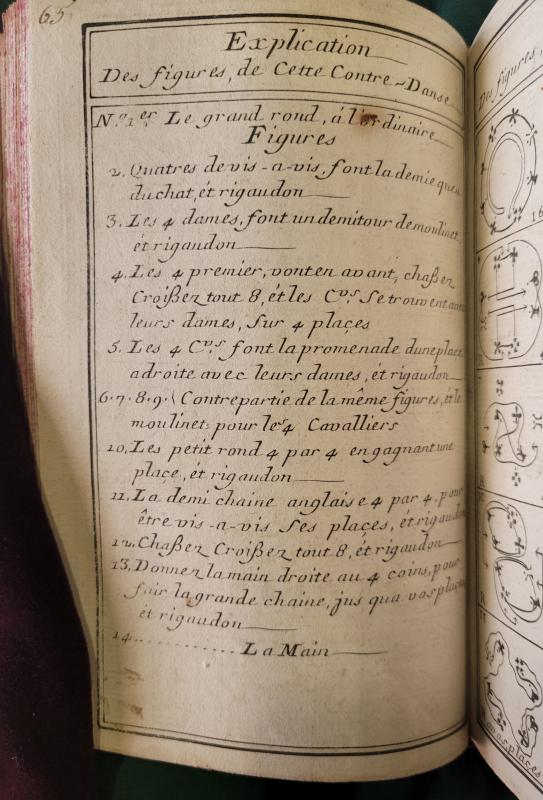 65
Explication
Des figures, de Cette Contre-Danse
N.o 1er Le grand rond, á l'ordinaire
Figures
2. Quatres de vis-a-vis, font la demie queu
du chat, ét rigaudon
3. Les 4 dames, font un demitour de moulinet
ét rigaudon
4. Les 4 premier, vont en avant, chaßez
Croißez tout 8, ét les Cvrs se trouvent avec
leurs dames, sur 4 plaçes
5. Les 4 Cvrs font la promenade dune place
a droite avec leurs dames, ét rigaudon
6.7.8.9. Contrepartie de la même figures, ét le
moulinet pour les 4 Cavalliers
10. Les petit rond 4 par 4 en gagnant une
plaçe, ét rigaudon
11. La demi chaine anglaise 4 par 4, pour
être vis-a-vis ses plaçes, ét rigaudon
12. Chaßez Croißez tout 8, ét rigaudon
13. Donnez la main droite au 4 coins, pour
fair la grande chaine, jus qua vos plaçes
ét rigaudon
14. ............ La Main
Des figures,
16
vos plaçes